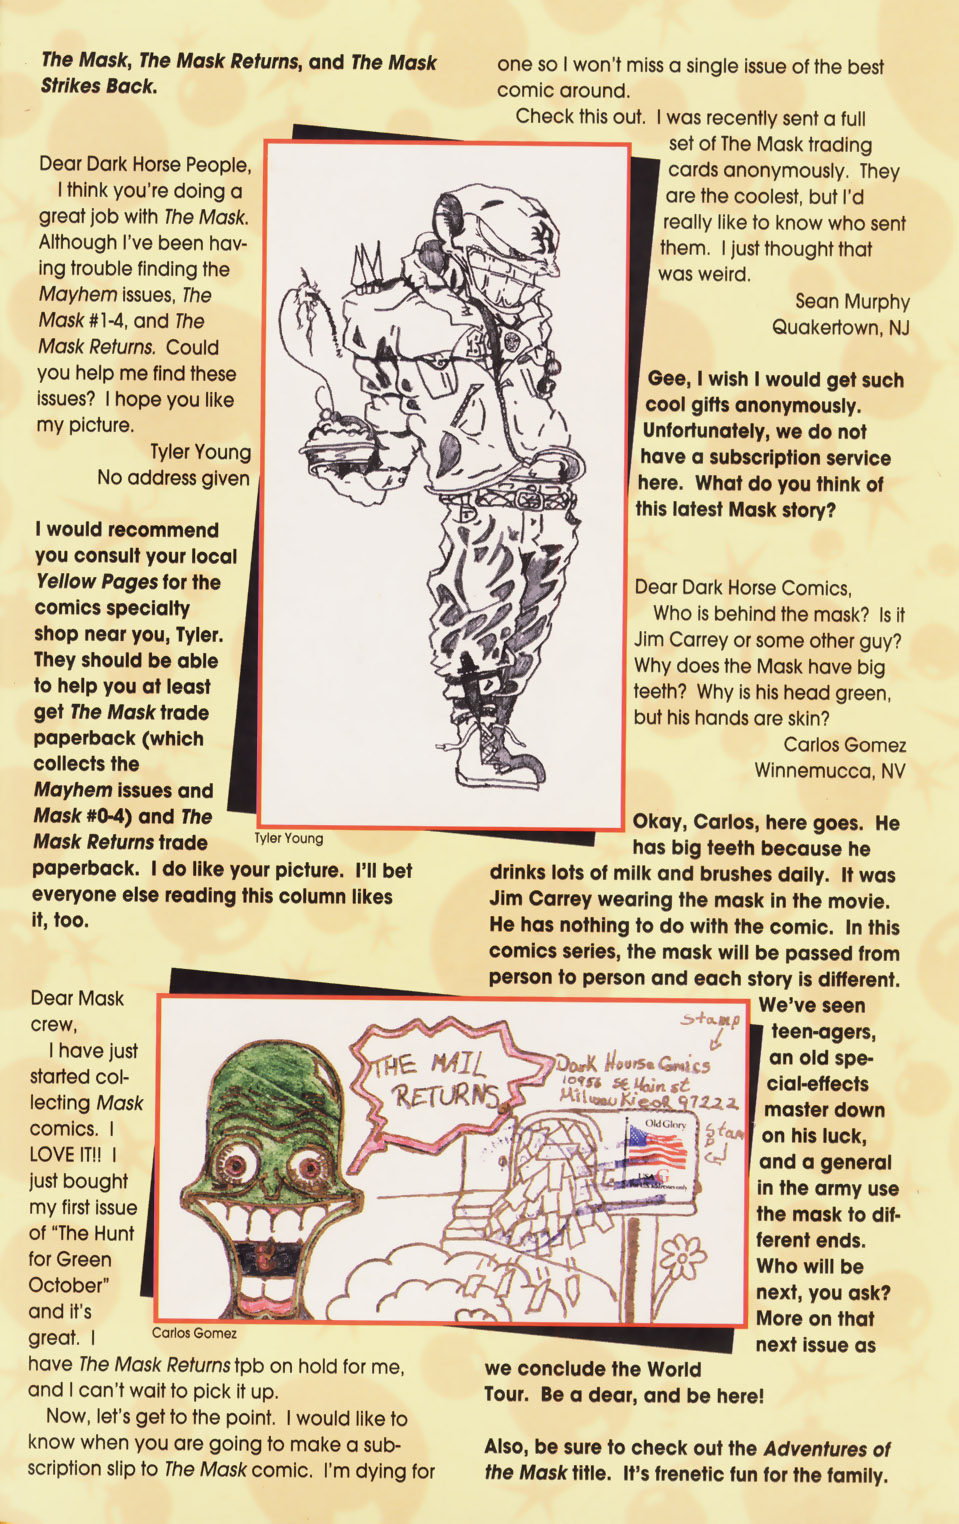 The Mask, The Mask Returns, and The Mask
Strikes Back.
Dear Dark Horse People,
I think you're doing a
great job with The Mask.
Although I've been hav-
ing trouble finding the
Mayhem issues, The
Mask #1-4, and The
Mask Returns. Could
you help me find these
issues? I hope you like
my picture.
Tyler Young
No address given
I would recommend
you consult your local
Yellow Pages for the
comics specialty
shop near you, Tyler.
They should be able
to help you at least
get The Mask trade
paperback (which
collects the
Mayhem issues and
Mask #0-4) and The
Mask Returns trade
paperback. I do like your picture. I'll bet
everyone else reading this column likes
it, too.
Tyler Young
Dear Mask
crew,
I have just
started col-
lecting Mask
comics. I
LOVE IT!! I
just bought
my first issue
of "The Hunt
for Green
October"
and it's
great. I
have The Mask Returns tpb on hold for me,
and I can't wait to pick it up.
Now, let's get to the point. I would like to
know when you are going to make a sub-
scription slip to The Mask comic. I'm dying for
one so I won't miss a single issue of the best
comic around.
Check this out. I was recently sent a full
set of The Mask trading
cards anonymously. They
are the coolest, but I'd
really like to know who sent
them. I just thought that
was weird.
Sean Murphy
Quakertown, NJ
Gee, I wish I would get such
cool gifts anonymously.
Unfortunately, we do not
have a subscription service
here. What do you think of
this latest Mask story?
Dear Dark Horse Comics,
Who is behind the mask? Is it
Jim Carrey or some other guy?
Why does the Mask have big
teeth? Why is his head green,
but his hands are skin?
Carlos Gomez
Winnemucca, NV
Okay, Carlos, here goes. He
has big teeth because he
drinks lots of milk and brushes daily. It was
Jim Carrey wearing the mask in the movie.
He has nothing to do with the comic. In this
comics series, the mask will be passed from
person to person and each story is different.
We've seen
teen-agers,
an old spe-
cial-effects
master down
on his luck,
and a general
in the army use
the mask to dif-
ferent ends.
Who will be
next, you ask?
More on that
next issue as
we conclude the World
Tour. Be a dear, and be here!
Also, be sure to check out the Adventures of
the Mask title. It's frenetic fun for the family.
THE MAIL
RETURNS
Stamp
Dark Hourse Comics
10956 SE Main st
Milwaukie OR 97222
Old Glory
USA G
Carlos Gomez